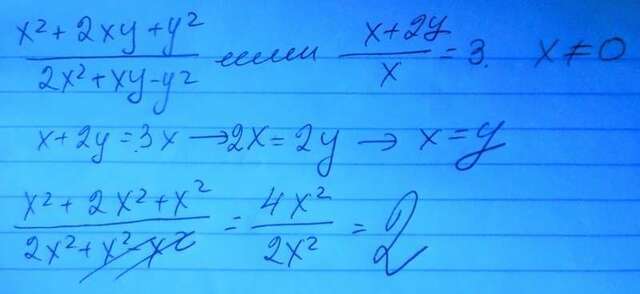 x² + 2xy + y² / 2x² + xy - y² если x + 2y / x = 3. x ≠ 0
x + 2y = 3x → 2x = 2y → x = y
x² + 2x² + x² / 2x² + x² - x² = 4x² / 2x² = 2